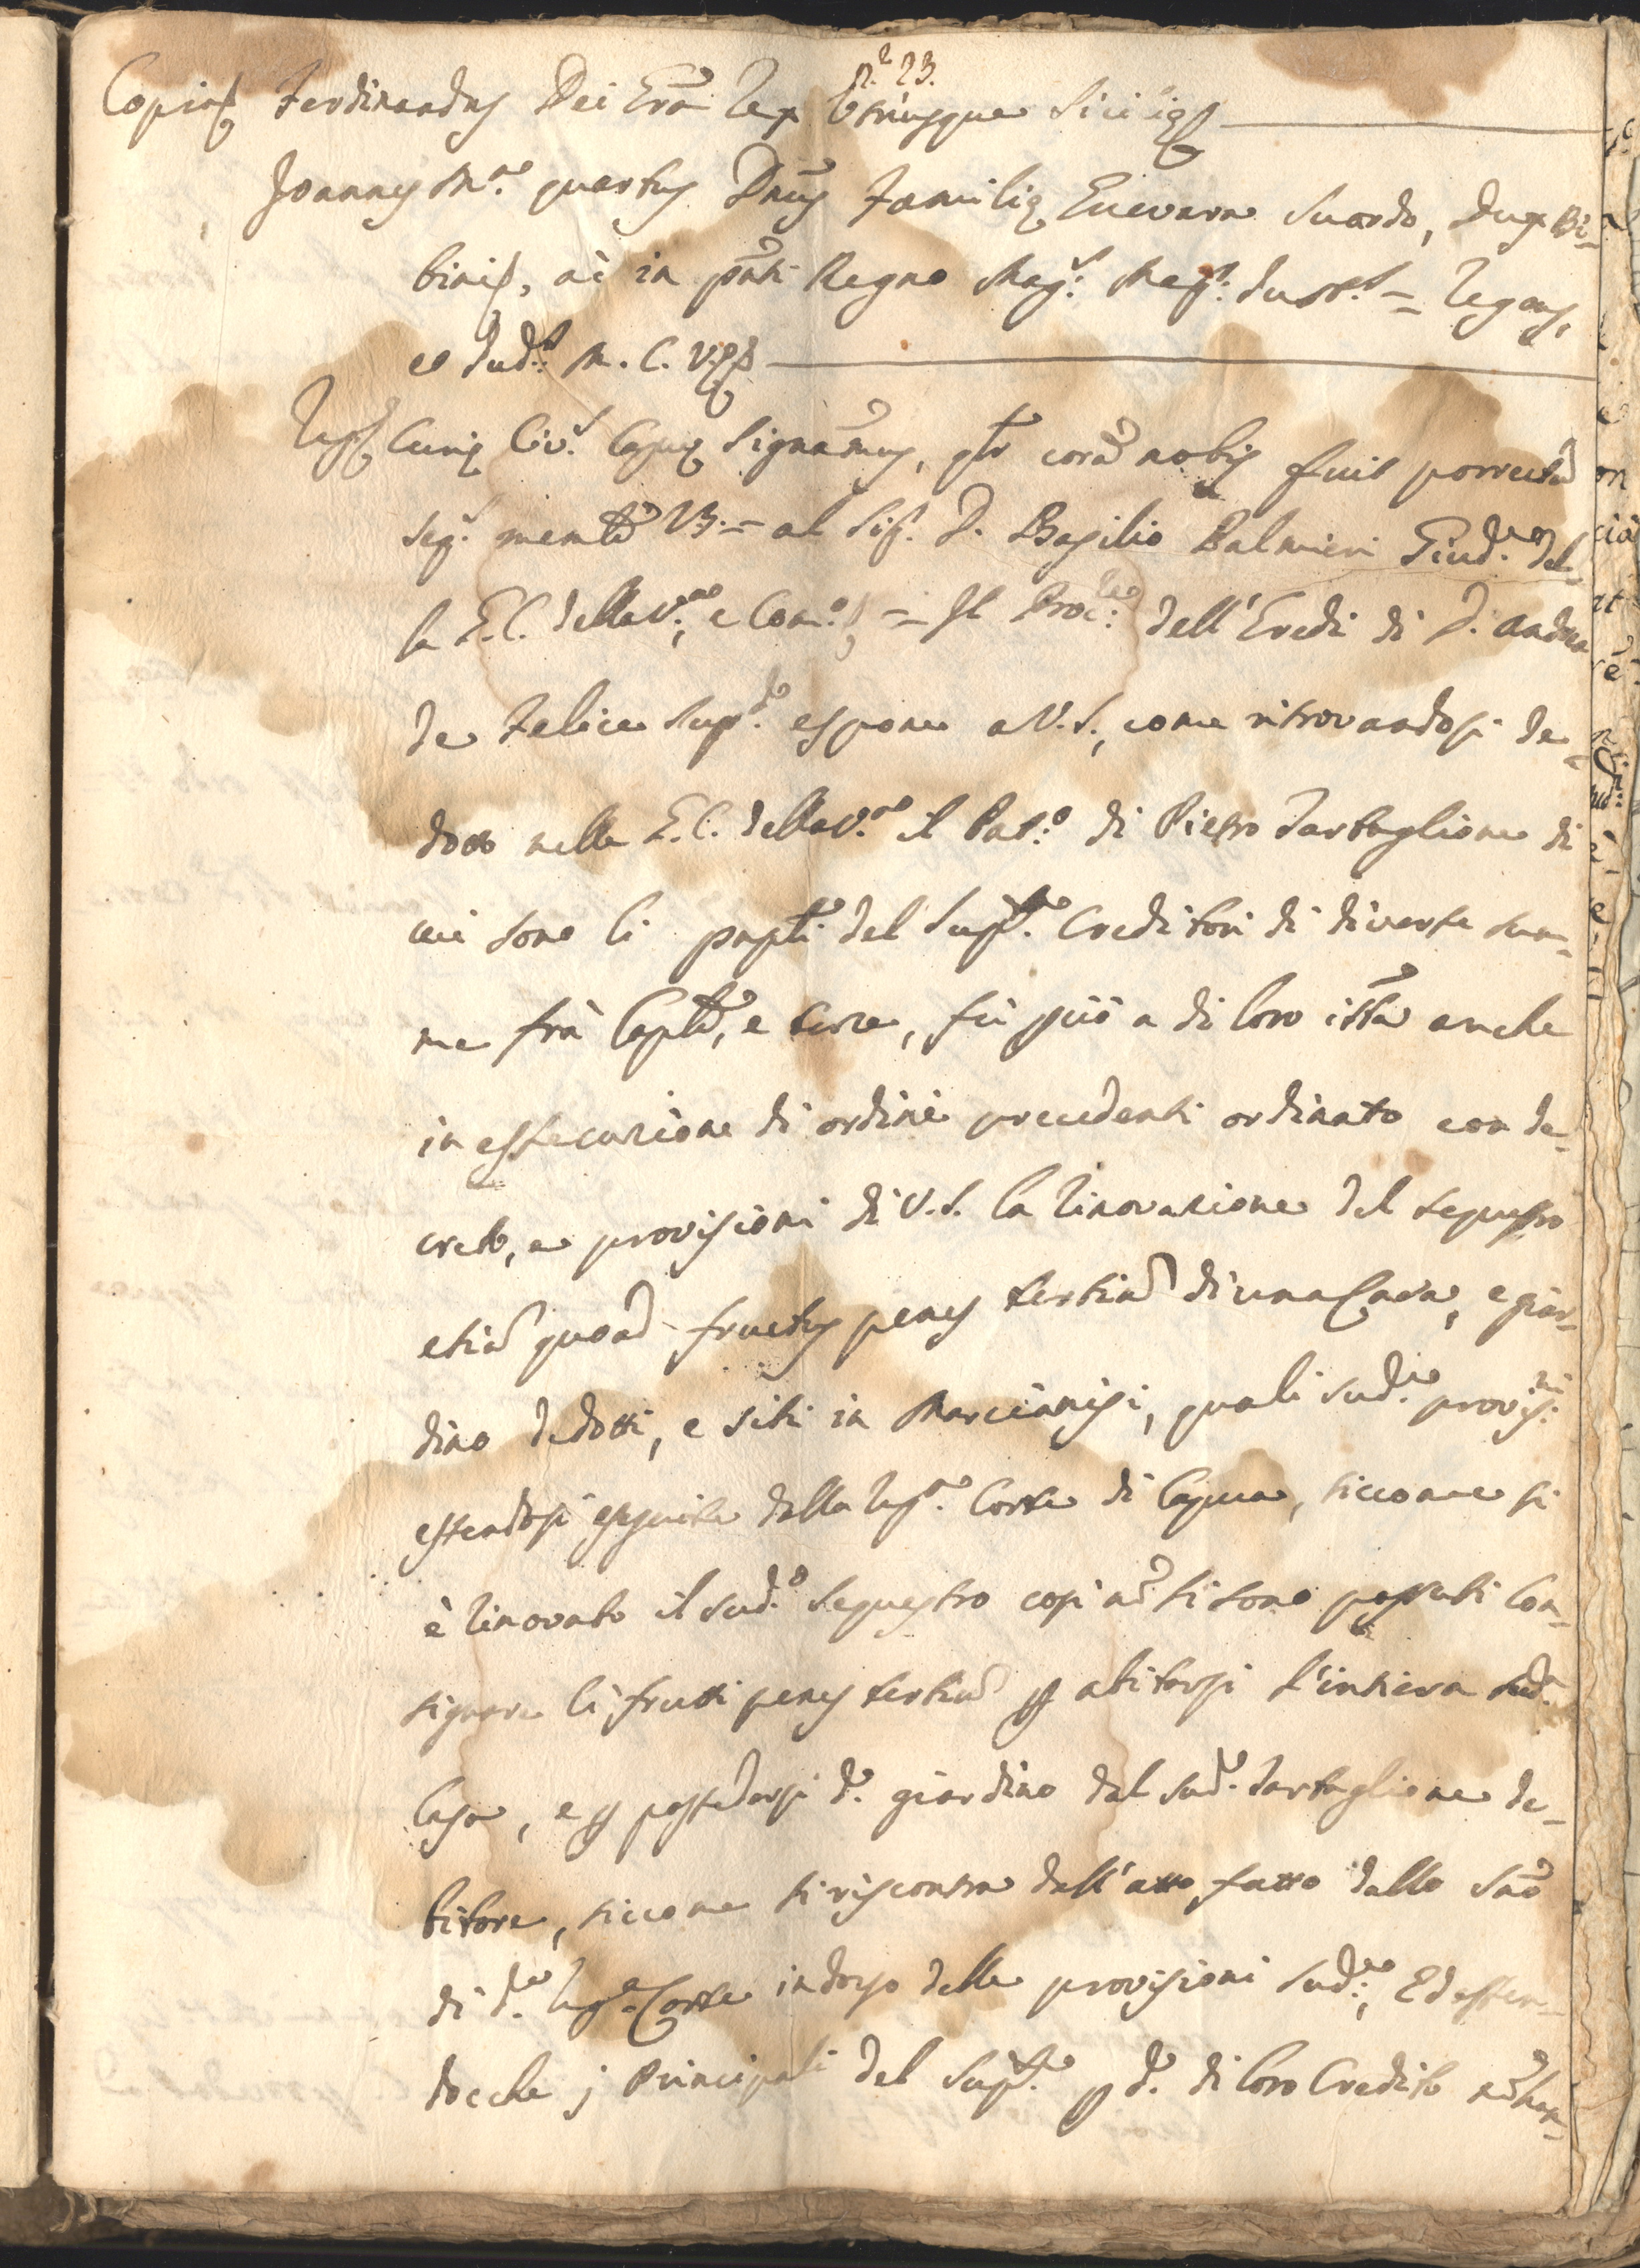 n.º 23.
Copia Ferdinandus Dei Grã Rex Utriusque Siciliæ
Joannes M.ª quartus Dñus Familiæ Guevara Suardo, Dux Bi-
bini, ac in pnti Regno Mag.s Mag.r Just.s = Regens,
et Jud.s M. C. V.
Curiæ Civ.s Capuæ Significamus, qtr corã nobis fuit porrectũ
seq.s memle V3. = al Sig. D. Basilio Palmieri Giud.e del-
la G. C. della V.ria, e Com.o = Il Proc.re dell'Eredi di D. Andrea
de Felice supp.te espone a V. S., come ritrovandosi de-
dotto nella G. C. della V.ria il Pat.o di Pietro Tartaglione di
cui sono li pnpli del Supp.te Creditori di diverse som-
me frà Caple, e terze, fù a di loro istã anche
in essecuzione di ordini precedenti ordinato con de-
creto, e provisioni di V. S. la rinovazione del sequestro
etiã quoad fructus penes tertiũ di una Casa, e giar-
dino dedotti, e siti in Marcianisi, quali sud.e provis.ni
essendosi esequite dalla Reg.a Corte di Capua, siccome si
è rinovato il sud.o sequestro così nõ si sono possuti con-
signare li frutti penes tertiũ p abitarsi l'intiera sud.a
Casa, e p possedersi d.o giardino dal sud.o Tartaglione de-
bitore, siccome si riscontra dall'atto fatto dallo Snõ
di d.a Reg.a Corte in dorso delle provisioni sud.e, Ed essen-
docche j Principali del Supp.te p d.o di loro Credito nõ han-